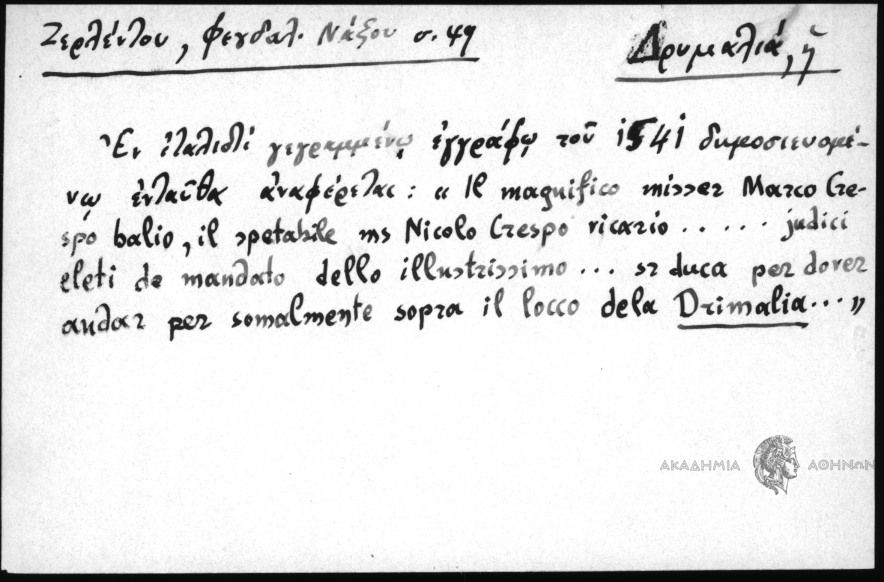 Ζερλέντου, Φεγδαλ. Νάξου σ. 49
Δρυμαλιά, ἡ
Ἐν ἰταλιστὶ γεγραμμένῳ ἐγγράφῳ τοῦ 1541 δημοσιευομέ-
νῳ ἐνταῦθα ἀναφέρεται: « Il magnifico misser Marco Cre-
spo balio, il spetabile ms Nicolo Crespo ricario ..... judici
eleti de mandato dello illustrissimo ... sr duca per dover
andar per somalmente sopra il locco dela Drimalia ... »
ΑΚΑΔΗΜΙΑ ΑΘΗΝΩΝ